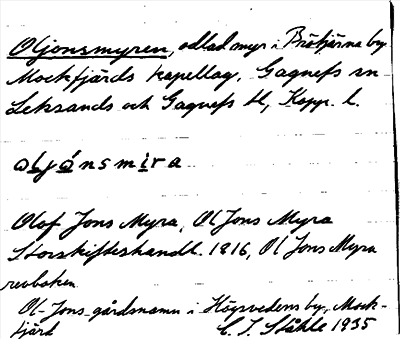 Oljonsmyren, odlad myr i Brötjärna by
Mockfjärds kapellag, Gagnefs sn
Leksands och Gagnefs tl, Kopp. l.
oljónsmira
Olof Jons Myra, Ol Jons Myra
Storskifteshandl. 1816, Ol Jons Myra
revboken
Ol-Jons gårdsnamn i Högsvedens by, Mock-
fjärd C. I. Ståhle 1935